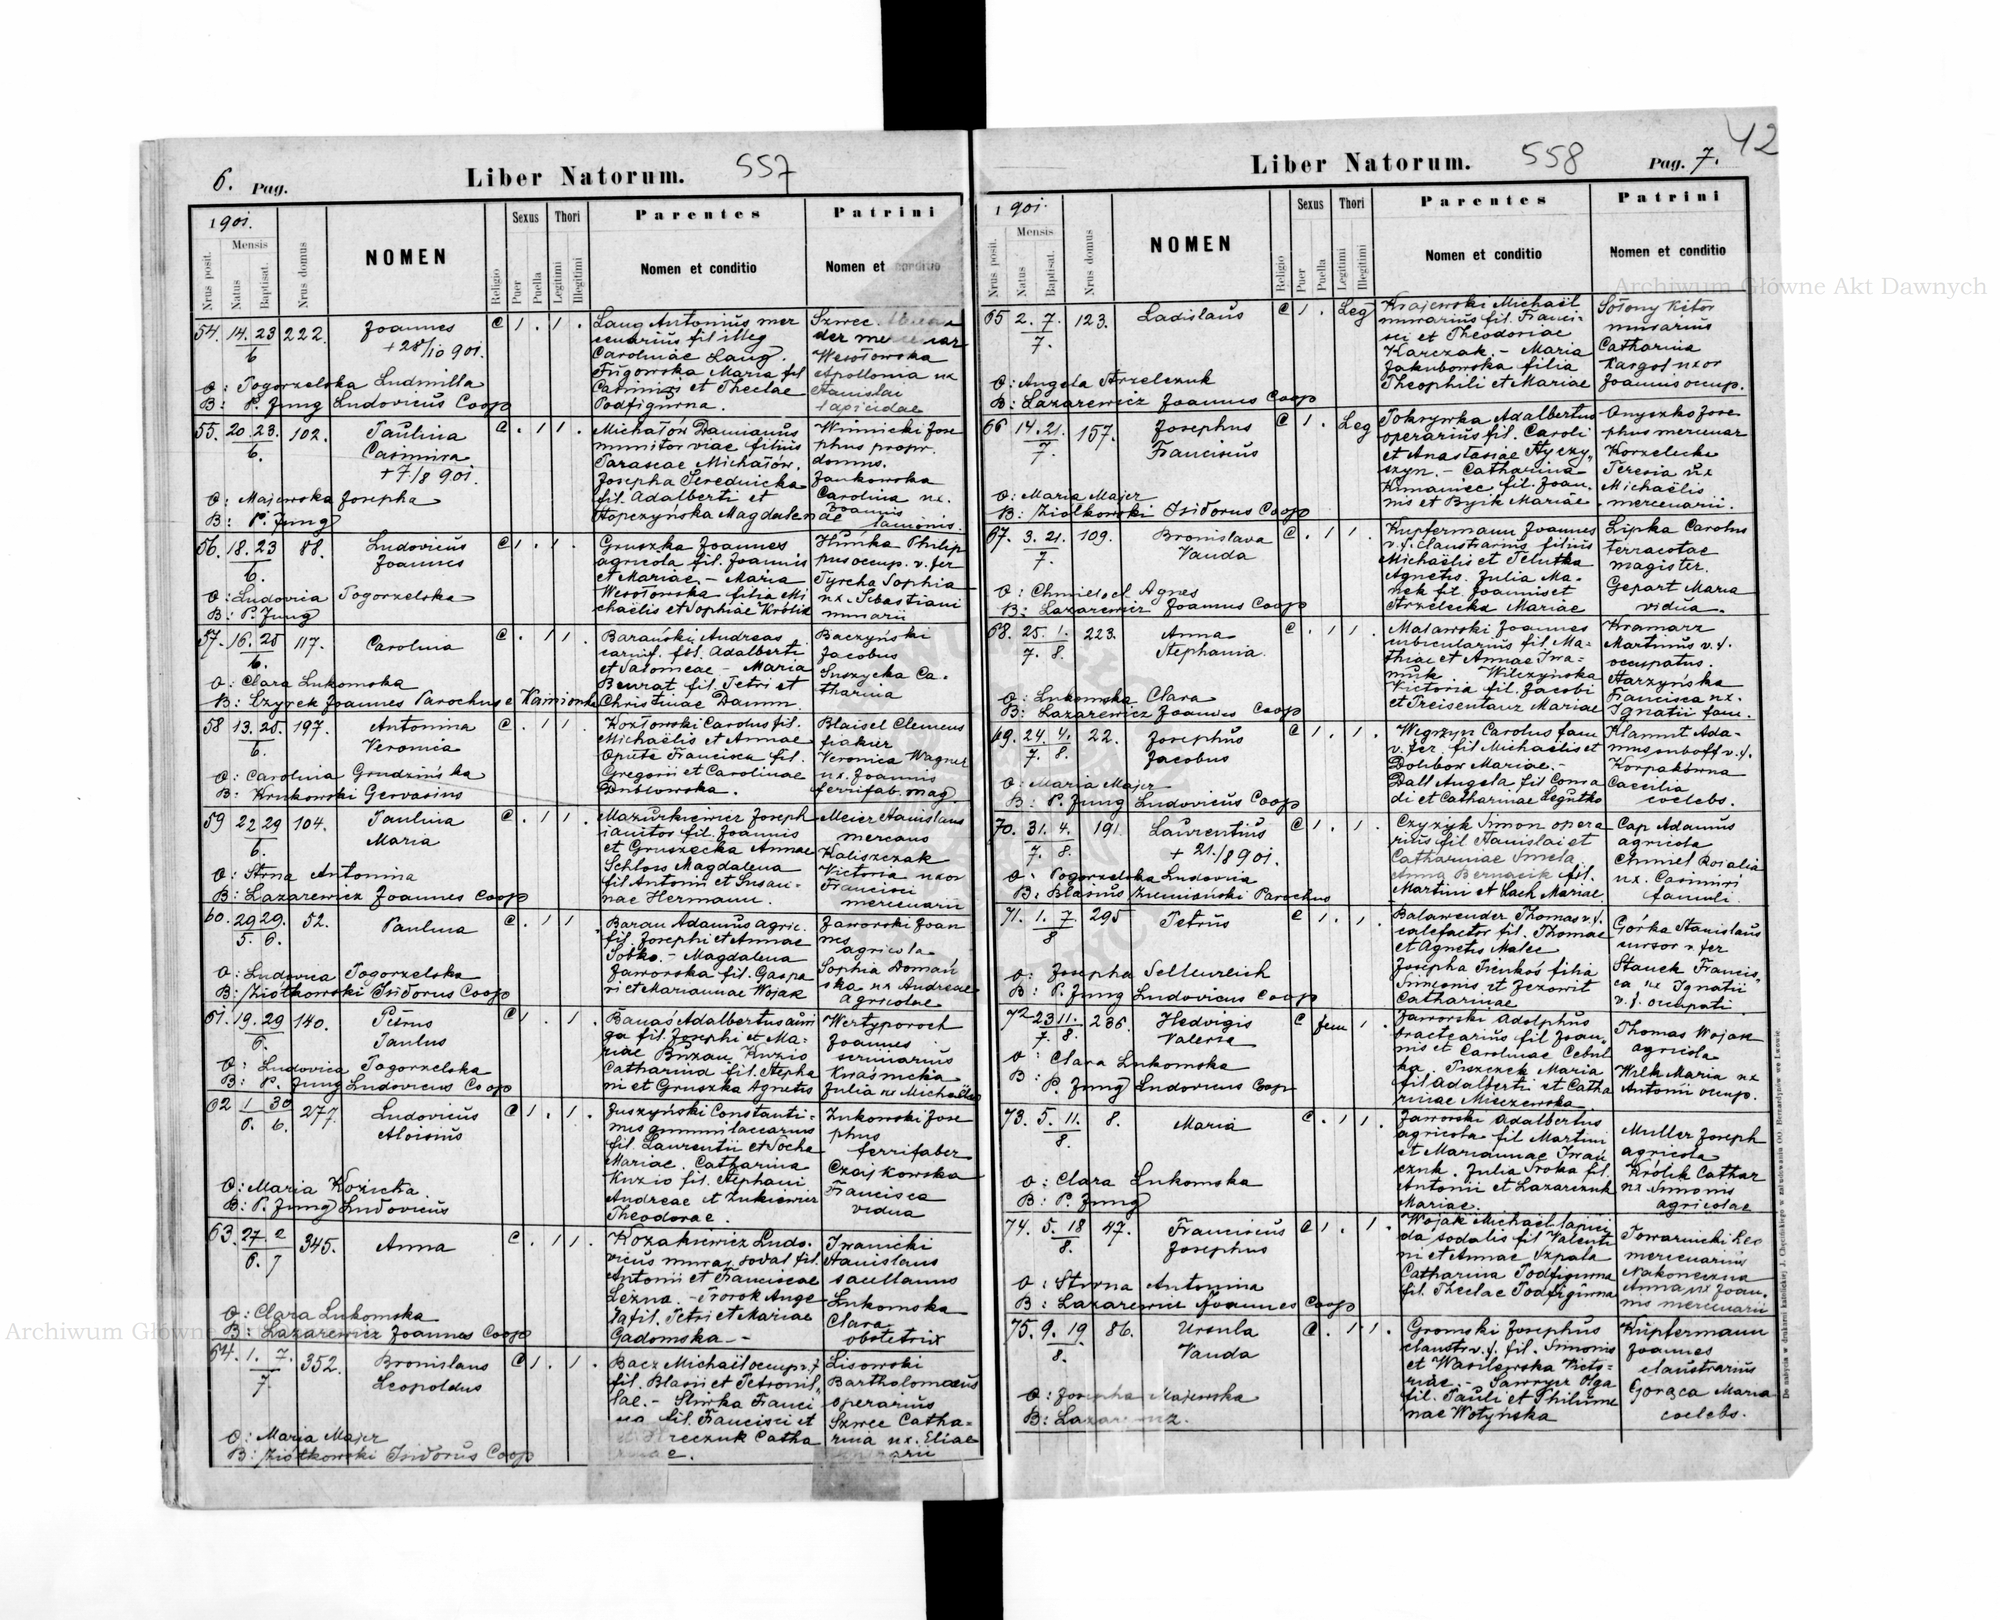 6. Pag.
Liber Natorum.
557
1901.
Nrus posit.
Mensis
Natus
Baptisat.
Nrus domus
NOMEN
Religio
Sexus
Puer
Puella
Thori
Legitimi
Illegitimi
Parentes
Nomen et conditio
Patrini
Nomen et conditio
54. 14. 23 222. Joannes C 1 . 1 .
6
+ 28/10 901.
O: Pogorzelska Ludmilla
B: P. Jung Ludovicus Coop
Laug Antonius mer
cenarius fil illeg
Carolinae Laug.
Fugowska Maria fil
Casimiri et Theclae
Podfigurna.
Szwec
der mercenar
Wesołowska
Apollonia ux
Stanislai
lapicidae
55. 20. 23. 102. Paulina C . 1 1 .
6.
Casimira
+ 7/8 901.
O: Majewska Josepha
B: P. Jung
Michałów Damianus
munitor viae filius
Parascae Michałów.
Josepha Serednicka
fil. Adalberti et
Hopczyńska Magdalenae
Winnicki Jose
phus propr.
domus.
Jankowska
Carolina ux.
Joannis
lanionis.
56. 18. 23 88. Ludovicus C 1 . 1 .
6.
Joannes
O: Ludovica Pogorzelska
B: P. Jung
Gruszka Joannes
agricola fil. Joannis
et Mariae. - Maria
Wesołowska filia Mi
chaëlis et Sophiae Królik
Hunka Philip
pus occup. v. fer
Tyrcha Sophia
ux. Sebastiani
murarii
57. 16. 25 117. Carolina C . 1 1 .
6.
O: Clara Lukomska
B: Czyrek Joannes Parochus e Kamionka
Barański Andreas
carnif. fil. Adalberti
et Salomeae - Maria
Beurat fil. Petri et
Christinae Damm.
Baczyński
Jacobus
Suszycka Ca-
tharina
58 13. 25. 197. Antonina C . 1 1 .
6.
Veronica
O: Carolina Grudzińska
B: Krukowski Gervasius
Kozłowski Carolus fil.
Michaëlis et Annae
Opute Francisca fil.
Gregorii et Carolinae
Dublowska.
Blaisel Clemens
fiakier
Veronica Wagner
ux. Joannis
ferrifab. mag.
59 22 29 104. Paulina C . 1 1 .
6.
Maria
O: Strna Antonina
B: Lazarewicz Joannes Coop
Mazurkiewicz Joseph
ianitor fil. Joannis
et Gruszecka Annae
Schloss Magdalena
fil Antonii et Susan-
nae Hermann.
Meier Stanislaus
mercans
Kaliszczak
Victoria uxor
Francisci
mercenarii
60. 29 29. 52. Paulina C . 1 1 .
5. 6.
O: Ludovica Pogorzelska
B: Ziółkowski Isidorus Coop
Baran Adamus agric.
fil. Josephi et Annae
Sobko. - Magdalena
Jaworska fil. Gaspa
ri et Mariannae Wojak
Jaworski Joan
nes
agricola
Sophia Domań
ska ux Andreae
agricolae
61. 19. 29 140. Petrus C 1 . 1 .
6.
Paulus
O: Ludovica Pogorzelska
B: P. Jung Ludovicus Coop
Banaś Adalbertus auri
ga fil. Josephi et Ma-
riae Buzan. Kuzio
Catharina fil. Stepha
ni et Gruszka Agnetis
Wertyporoch
Joannes
scriniarius
Kwaśnicka
Julia ux Michaëlis
62 1 30 277. Ludovicus C 1 . 1 .
6. 6.
Aloisius
O: Maria Kozicka
B: P. Jung Ludovicus
Juszyński Constanti-
nus gummilaccarius
fil. Laurentii et Socha
Mariae. Catharina
Kuzio fil. Stephani
Andreae et Lukiewicz
Theodorae.
Zukowski Jose
phus
ferrifaber
Czajkowska
Francisca
vidua
63. 27 2 345. Anna C . 1 1 .
6. 7
O: Clara Lukomska
B: Lazarewicz Joannes Coop
Kozakiewicz Ludo-
vicus murar. sodal. fil.
Antonii et Franciscae
Leżna. - Prorok Ange
la fil. Petri et Mariae
Gadomska -
Iwanicki
Stanislaus
sacellanus
Lukomska
Clara
obstetrix
64. 1. 7. 352. Bronislaus C 1 . 1 .
7.
Leopoldus
O: Maria Majer
B: Ziółkowski Isidorus Coop
Bacz Michaël occup. v. f
fil. Blasii et Petronil-
lae. - Sliwka Franci
sca fil. Francisci et
Catha
rinae.
Lisowski
Bartholomaeus
operarius
Szwec Catha-
rina ux. Eliae
Liber Natorum.
558
Pag. 7.
42
1901.
Nrus posit.
Mensis
Natus
Baptisat.
Nrus domus
NOMEN
Religio
Sexus
Puer
Puella
Thori
Legitimi
Illegitimi
Parentes
Nomen et conditio
Patrini
Nomen et conditio
65 2. 7. 123. Ladislaus C 1 . Leg
7.
O: Angela Strzelczuk
B: Lazarewicz Joannes Coop
Krajewski Michaël
murarius fil. Franci-
sci et Theodoriae
Karczak. - Maria
Jakubowska filia
Theophili et Mariae
Sołony Kitor
murarius
Catharina
Kargol uxor
Joannis occup.
66 14. 21. 157. Josephus C 1 . Leg
7.
Franciscus
O: Maria Majer
B: Ziolkowski Isidorus Coop
Pokrywka Adalbertus
operarius fil. Caroli
et Anastasiae Hyczy-
szyn. - Catharina
Kimaniec fil. Joan-
nis et Byjik Mariae
Onyszko Jose
phus mercenar
Korzelecka
Teresia ux
Michaëlis
mercenarii.
67. 3. 21. 109. Bronislava C . 1 1 .
7.
Vanda
O: Chmielocel Agnes
B: Lazarewicz Joannes Coop
Kupfermann Joannes
v.f. claustrarius filius
Michaëlis et Peluska
Agnetis. Julia Ma-
nek fil. Joannis et
Strzelecka Mariae
Lipka Carolus
terracotae
magister.
Gepart Maria
vidua.
68. 25. 1. 223. Anna C . 1 1 .
7. 8.
Stephania.
O: Lukomska Clara
B: Lazarewicz Joannes Coop
Malawski Joannes
cubicularius fil. Ma-
thiae et Annae Iwa-
niuk. Wilczyńska
Victoria fil. Jacobi
et Treisentanz Mariae
Kramarz
Martinus v.f.
occupatus.
Starzyńska
Francisca ux.
Ignatii fam.
69. 24. 4. 22. Josephus C 1 . 1 .
7. 8.
Jacobus
O: Maria Majer
B: P. Jung Ludovicus Coop
Węgrzyn Carolus fam
v. fer. fil Michaëlis et
Dolibor Mariae. -
Dall Angela fil Conra
di et Catharinae Legutko
Klamut Ada-
mus suboff v.f.
Korpakówna
Caecilia
coelebs.
70. 31. 4. 191. Laurentius C 1 . 1 .
7. 8.
+ 21./8 901.
O: Pogorzelska Ludovica
B: Blasius Zumiański Parochus
Czyżyk Simon opera
rius fil Stanislai et
Catharinae Smela.
Anna Bernacik fil.
Martini et Lach Mariae.
Cap Adamus
agricola
Chmiel Rosalia
ux. Casimiri
famuli.
71. 1. 7 295 Petrus C 1 . 1 .
8
O: Josepha Sellenreich
B: P. Jung Ludovicus Coop
Balawender Thomas v.f.
calefactor fil. Thomae
et Agnetis Malec
Josepha Pieńkoś filia
Simonis et Jezowit
Catharinae
Górka Stanislaus
cursor v. fer
Stanek Francis-
ca ux Ignatii
v.f. occupati.
72 23 11. 236. Hedvigis C fem 1 .
7. 8.
Valeria
O: Clara Lukomska
B: P. Jung Ludovicus Coop
Jaworski Adolphus
bractearius fil Joan-
nis et Carolinae Cebul
ka. Piszczek Maria
fil Adalberti et Catha
rinae Mieczewska
Thomas Wojak
agricola
Wilk Maria ux
Antonii occup.
73. 5. 11. 8. Maria C . 1 1 .
8.
O: Clara Lukomska
B: P. Jung
Jaworski Adalbertus
agricola fil Martini
et Mariannae Iwań
czuk. Julia Sroka fil.
Antonii et Lazarczuk
Mariae.
Muller Joseph
agricola
Królik Cathar
ux Simonis
agricolae
74. 5. 18 47. Franciscus C 1 . 1 .
8.
Josephus
O: Strna Antonina
B: Lazarewicz Joannes Coop
Wojak Michaël lapici
da sodalis fil Valenti
ni et Annae Szpala
Catharina Podfigurna
fil. Theclae Podfigurna
Towarnicki Leo
mercenarius
Nakoneczna
Anna ux Joan-
nis mercenarii
75. 9. 19 86. Ursula C . 1 1 .
8.
Vanda
O: Josepha Majewska
B: Lazarewicz.
Gromski Josephus
claustr v.f. fil. Simonis
et Wasilewska Victo-
riae. - Sawryn Olga
fil. Pauli et Philume
nae Wołyńska
Kupfermann
Joannes
claustrarius
Gorąca Maria
coelebs.
Do nabycia w drukarni katolickiej J. Chęcińskiego w zabudowaniu OO. Bernardynów we Lwowie.
Archiwum Główne Akt Dawnych
Archiwum Główne